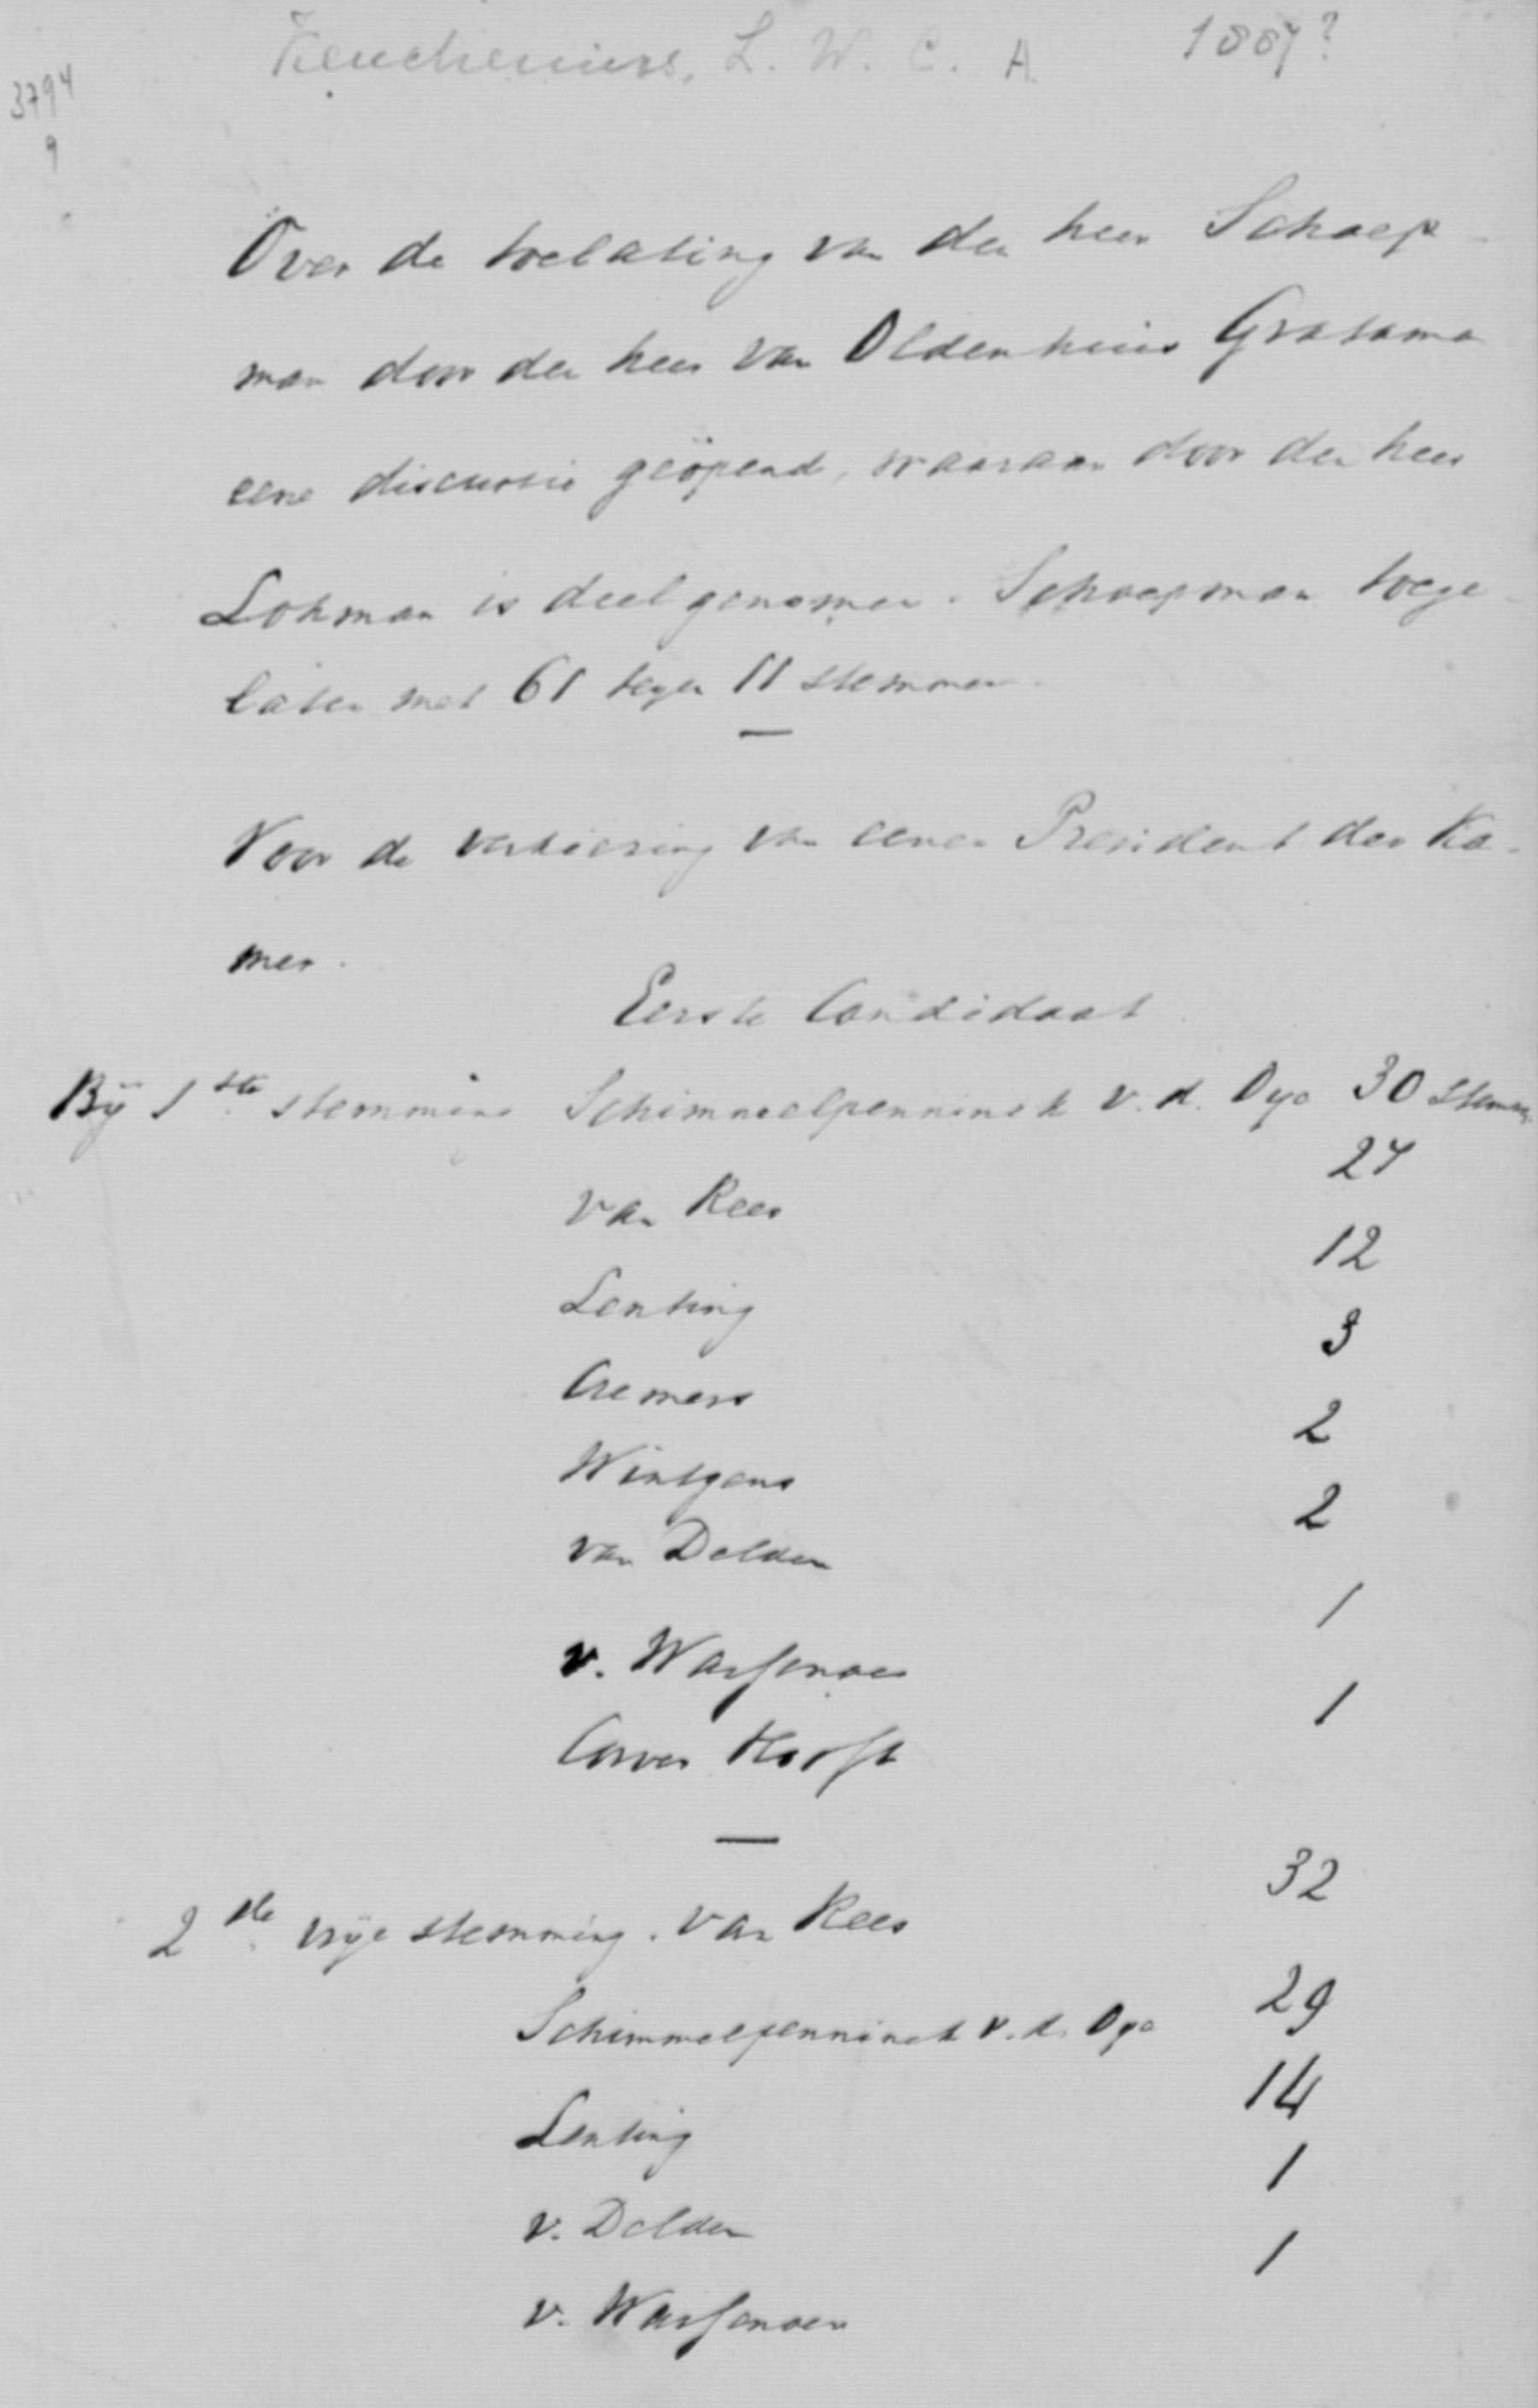 Keuchenius, L. W. C. A. 1887?
3794
9
Over de toelating van den heer Schaep-
man door den heer van Oldenhuis Gratama
eene discussie geöpend, waaraan door den heer
Lohman is deelgenomen. Schaepman toege-
laten met 61 tegen 11 stemmen.
Voor de verkiezing van eenen President der Ka-
mer.
Eerste Candidaat
Bij 1ste stemming Schimmelpenninck v. d. Oye 30 stemmen
van Rees 27
Lenting 12
Cremers 3
Wintgens 2
van Delden 2
v. Wassenaer 1
Corver Hooft 1
2de vrije stemming. van Rees 32
Schimmelpenninck v. d. Oye 29
Lenting 14
v. Delden 1
v. Wassenaer 1